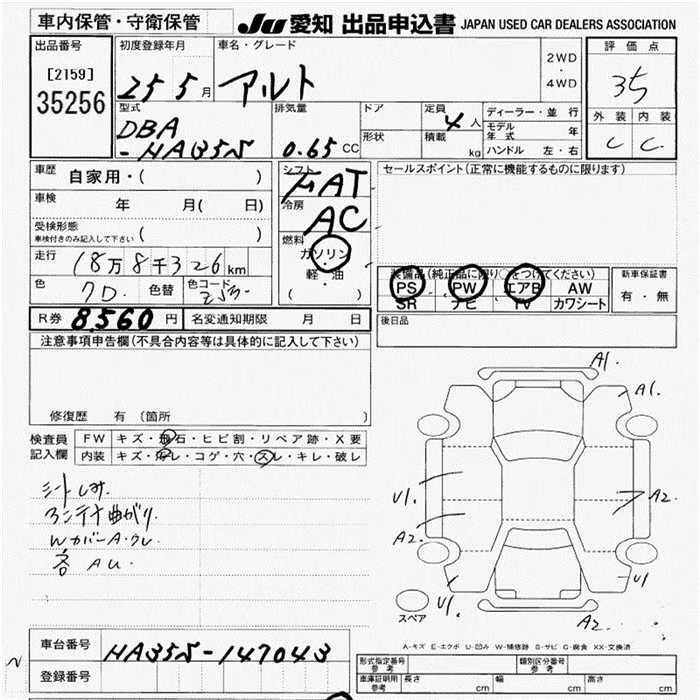 車内保管・守衛保管 JU 愛知 出品申込書 JAPAN USED CAR DEALERS ASSOCIATION
出品番号 初度登録年月 車名・グレード 2WD・4WD 評価点
[2159] 25 5月 アルト 35
35256
型式 排気量 ドア 定員 4人 ディーラー・並行 外装 内装
DBA 形状 積載 kg モデル年式 年 C C
-HA35S 0.65 CC ハンドル 左・右
車歴 自家用・( ) シフト AT セールスポイント(正常に機能するものに限ります)
車検 年 月( 日) 冷房 AC
受検形態 ( )
車検付きのみ記入して下さい
燃料 ガソリン
走行 18万8千326km 軽・油 装備品(純正品に限り○をつけてください) 新車保証書
色 色替 色コード Z53 ( ) PS PW エアB AW 有・無
SR ナビ TV カワシート
R券 8,560円 名変通知期限 月 日 後日品
注意事項申告欄(不具合内容等は具体的に記入して下さい)
修復歴 有 (箇所
検査員 FW キズ・飛石・ヒビ割・リペア跡・X要
記入欄 内装 キズ・汚レ・コゲ・穴・スレ・キレ・破レ
シートしみ
アンテナ曲がり
WカバーA・クレ
各 AU.
A1.
A1.
U1.
A2
A2.
U1.
U1
A2.
スペア
A-キズ E-エクボ U-凹み W-補修跡 S-サビ C-腐食 XX-交換済
車台番号 HA35S-147043
登録番号
形式指定番号 参考 類別区分番号 参考
車庫証明用 参考 長さ cm 幅 cm 高さ cm